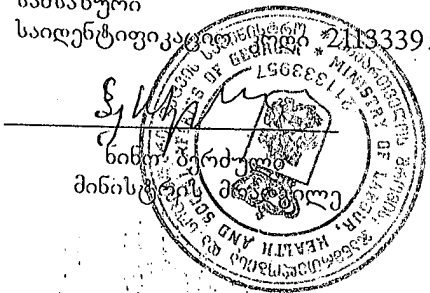 სამსახური
საიდენტიფიკაციო კოდი 2113339
ნინო ბერძული
მინისტრის მოადგილე
MINISTRY OF LABOUR, HEALTH AND SOCIAL AFFAIRS OF GEORGIA
211333957